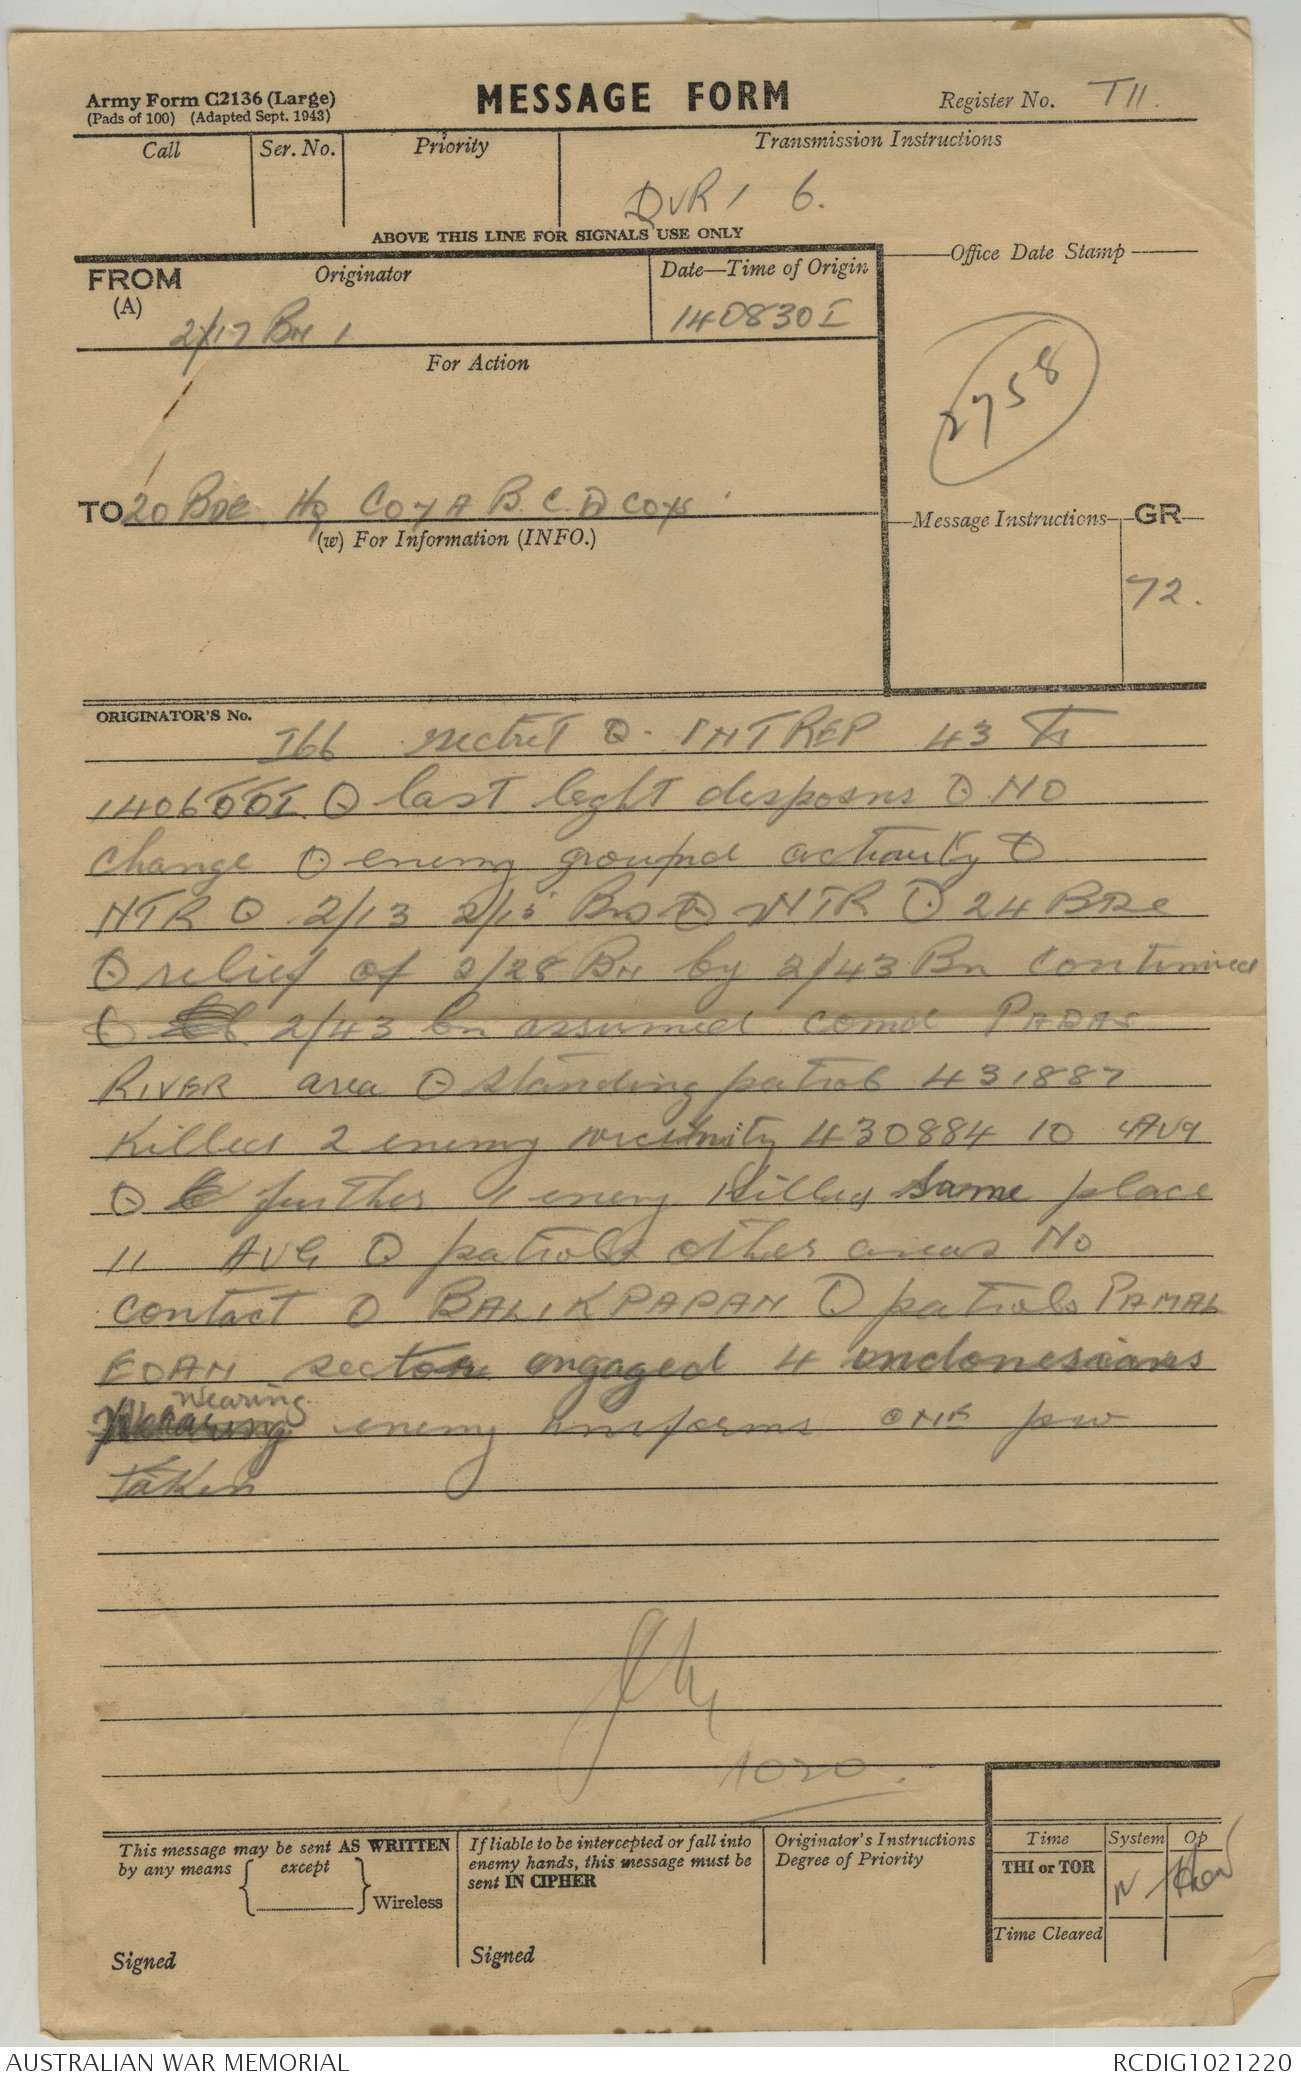 Army Form C2136 (Large)
(Pads of 100) (Adapted Sept. 1943)
MESSAGE FORM
Register No. T11.
Call
Ser. No.
Priority
Transmission Instructions
DVR 1 6.
ABOVE THIS LINE FOR SIGNALS USE ONLY
FROM
(A)
Originator
Date—Time of Origin
Office Date Stamp
2/17 BN 1
140830I
For Action
2758
TO 20 BDE HQ COY A B. C. D COYS
(w) For Information (INFO.)
Message Instructions
GR
72.
ORIGINATOR'S No.
I66 secret O INTREP 43 to
140600I O last light disposns O NO
change O enemy ground activity O
NTR O 2/13 2/15 Bns O NTR O 24 BDE
O relief of 2/28 BN by 2/43 Bn continued
O 2/43 bn assumed comd PADAS
RIVER area O standing patrol 431887
killed 2 enemy vicinity 430884 10 AUG
O further 1 enemy killed same place
11 AUG O patrols other areas No
contact O BALIKPAPAN O patrols PAMAL
EDAN sector engaged 4 indonesians
wearing
enemy uniforms ONE pw
taken
1020.
This message may be sent AS WRITTEN
by any means
except
Wireless
Signed
If liable to be intercepted or fall into
enemy hands, this message must be
sent IN CIPHER
Signed
Originator's Instructions
Degree of Priority
Time
System
Op
THI or TOR
Time Cleared
AUSTRALIAN WAR MEMORIAL
RCDIG1021220